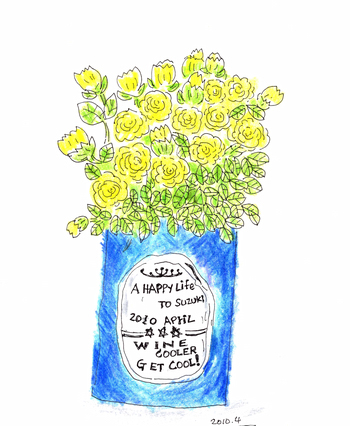 A HAPPY Life
TO SUZUKI
2010 APRIL
WINE
COOLER
GET COOL!
2010.4